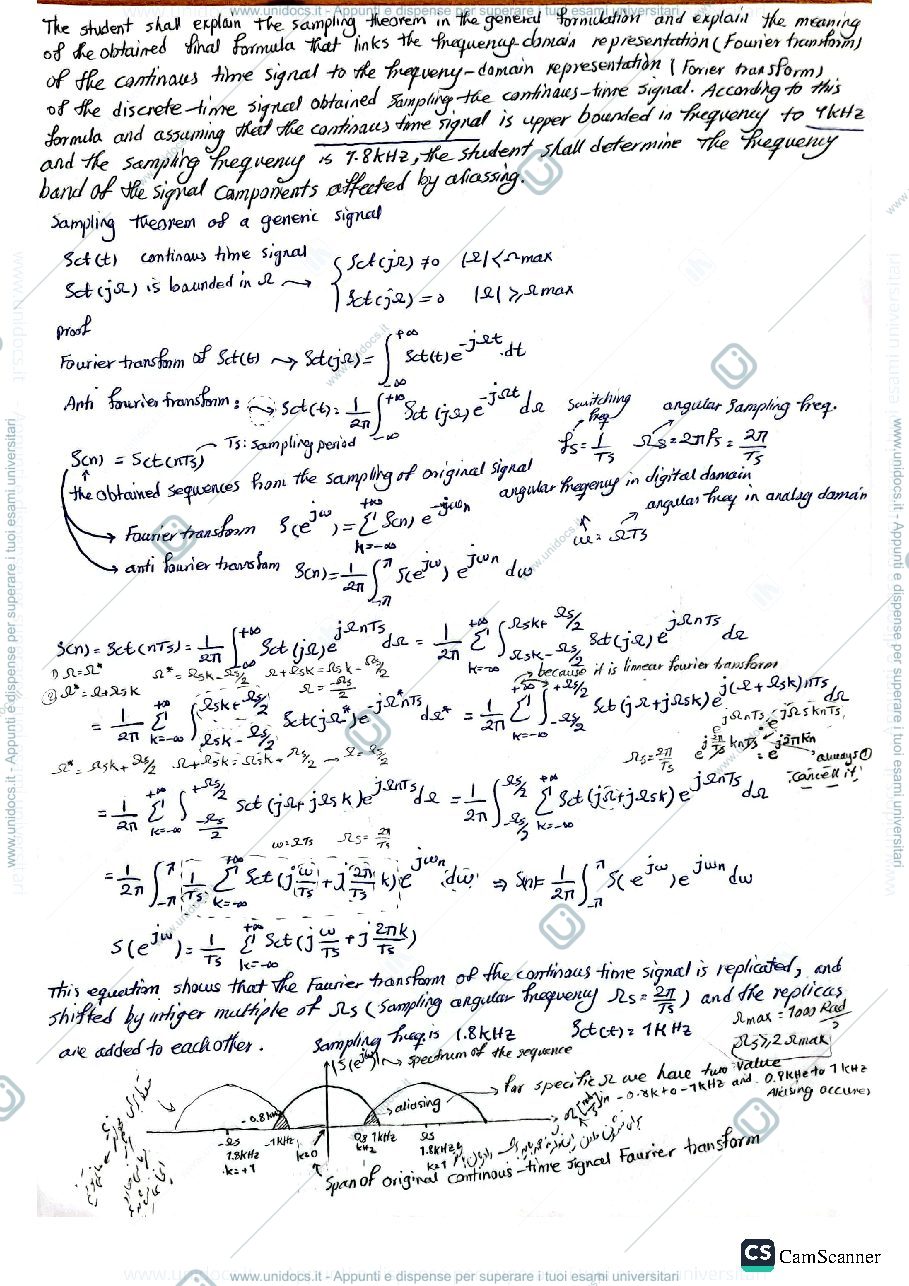 www.unidocs.it - Appunti e dispense per superare i tuoi esami universitari
The student shall explain the sampling theorem in the general formulation and explain the meaning
of the obtained final formula that links the frequency-domain representation (Fourier transform)
of the continous time signal to the frequeny-domain representation (Forier transform)
of the discrete-time signal obtained sampling the continous-time signal. According to this
formula and assuming that the continous time signal is upper bounded in frequency to 1kHz
and the sampling frequency is 1.8kHz, the student shall determine the frequency
band of the signal components affected by aliassing.
Sampling theorem of a generic signal
Sct(t) continous time signal
Sct(jΩ) is bounded in Ω → { Sct(jΩ) ≠ 0 |Ω| < Ωmax
Sct(jΩ) = 0 |Ω| ≥ Ωmax
Proof
Fourier transform of Sct(t) → Sct(jΩ) = ∫_{-∞}^{+∞} Sct(t) e^{-jΩt} .dt
Anti fourier transform: → Sct(t) = 1/2π ∫_{-∞}^{+∞} Sct(jΩ) e^{-jΩt} dΩ
Switching freq fs = 1/Ts angular sampling freq. Ωs = 2πfs = 2π/Ts
S(n) = Sct(nTs) → Ts: sampling period
the obtained sequences from the sampling of original signal
angular freqency in digital domain
angular freq in analog domain
ω = ΩTs
→ Fourier transform S(e^{jω}) = Σ_{k=-∞}^{+∞} S(n) e^{-jωn}
→ anti fourier transfom S(n) = 1/2π ∫_{-π}^{π} S(e^{jω}) e^{jωn} dω
S(n) = Sct(nTs) = 1/2π ∫_{-∞}^{+∞} Sct(jΩ) e^{jΩnTs} dΩ = 1/2π Σ_{k=-∞}^{+∞} ∫_{Ωsk-Ωs/2}^{Ωsk+Ωs/2} Sct(jΩ) e^{jΩnTs} dΩ
1) Ω = Ω* Ω* = Ωsk - Ωs/2 Ω + Ωsk = Ωsk - Ωs/2
② Ω* = Ω + Ωsk Ω = -Ωs/2
because it is linear fourier transform
= 1/2π Σ_{k=-∞}^{+∞} ∫_{Ωsk-Ωs/2}^{Ωsk+Ωs/2} Sct(jΩ*) e^{-jΩ*nTs} dΩ* = 1/2π Σ_{k=-∞}^{+∞} ∫_{-Ωs/2}^{+Ωs/2} Sct(jΩ + jΩsk) e^{j(Ω+Ωsk)nTs} dΩ
e^{jΩnTs} . e^{jΩsknTs}
Ω* = Ωsk + Ωs/2 Ω + Ωsk = Ωsk + Ωs/2 → Ω = Ωs/2
Ωs = 2π/Ts e^{j 2π/Ts knTs} = e^{j2πkn} always ①
cancell it
= 1/2π Σ_{k=-∞}^{+∞} ∫_{-Ωs/2}^{+Ωs/2} Sct(jΩ + jΩsk) e^{jΩnTs} dΩ = 1/2π ∫_{-Ωs/2}^{Ωs/2} Σ_{k=-∞}^{+∞} Sct(jΩ + jΩsk) e^{jΩnTs} dΩ
ω = ΩTs Ωs = 2π/Ts
= 1/2π ∫_{-π}^{π} 1/Ts Σ_{k=-∞}^{+∞} Sct(j ω/Ts + j 2π/Ts k) e^{jωn} dω ⇒ Sn = 1/2π ∫_{-π}^{π} S(e^{jω}) e^{jωn} dω
S(e^{jω}) = 1/Ts Σ_{k=-∞}^{+∞} Sct(j ω/Ts + j 2πk/Ts)
This equation shows that the Fourier transform of the continous time signal is replicated, and
shifted by intiger multiple of Ωs (sampling angular frequency Ωs = 2π/Ts) and the replicas
are added to eachother.
Sampling freq. is 1.8kHz Sct(t) = 1kHz
Ωmax = 1000 Rad
Ωs ≥ 2 Ωmax
|S(e^{jω})| → spectrum of the sequence
For specific Ω we have two value
-0.8k to -1kHz and 0.8kHz to 1kHz
Aliasing occures
-0.8kHz
aliasing
-Ωs 1.8kHz k=+1
-1kHz
k=0
1kHz
Ωs 1.8kHz k=1
Span of original continous-time signal Fourier transform
CS CamScanner
www.unidocs.it - Appunti e dispense per superare i tuoi esami universitari